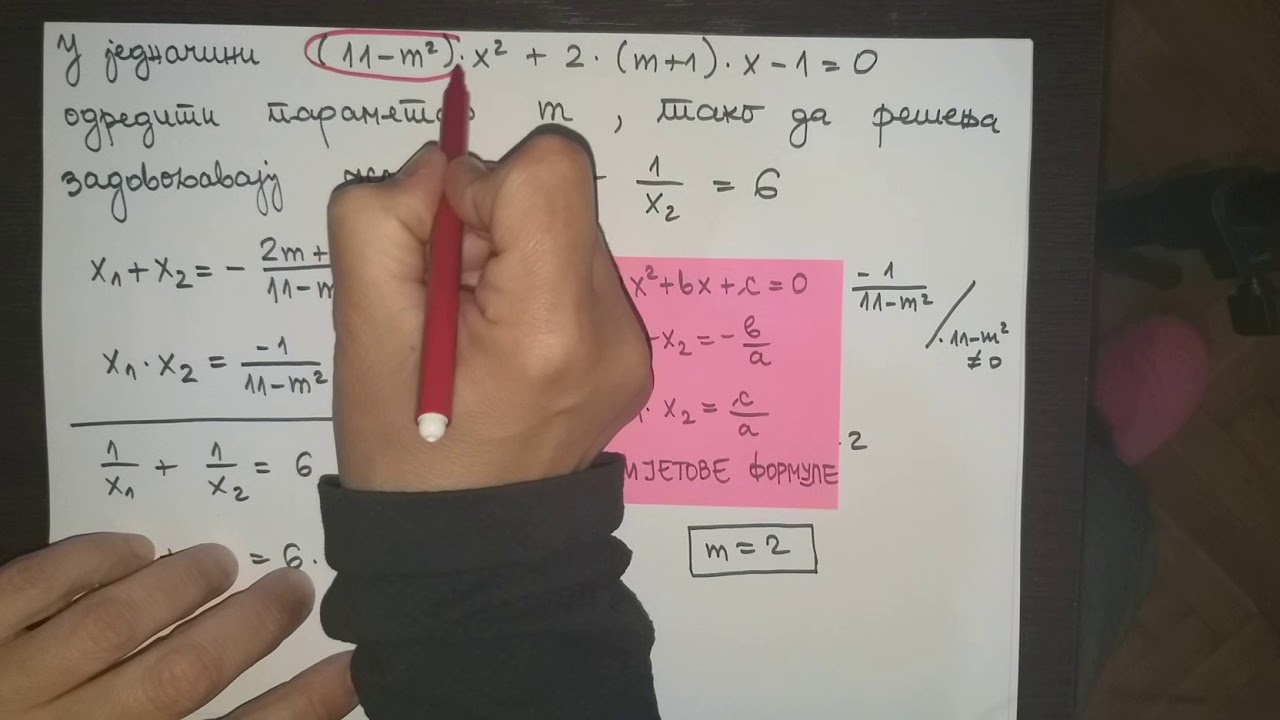 У једначини (11-m²)·x² + 2·(m+1)·x-1=0
одредити m, тако да решења
задовољавају 1/x₂ = 6
x₁+x₂ = - 2m+ / 11-m
x₁·x₂ = -1 / 11-m²
1/x₁ + 1/x₂ = 6
= 6·
x²+bx+c=0
x₂ = - b/a
· x₂ = c/a
ИЈЕТОВЕ ФОРМУЛЕ
-1 / 11-m² / ·11-m²
≠0
·2
m = 2